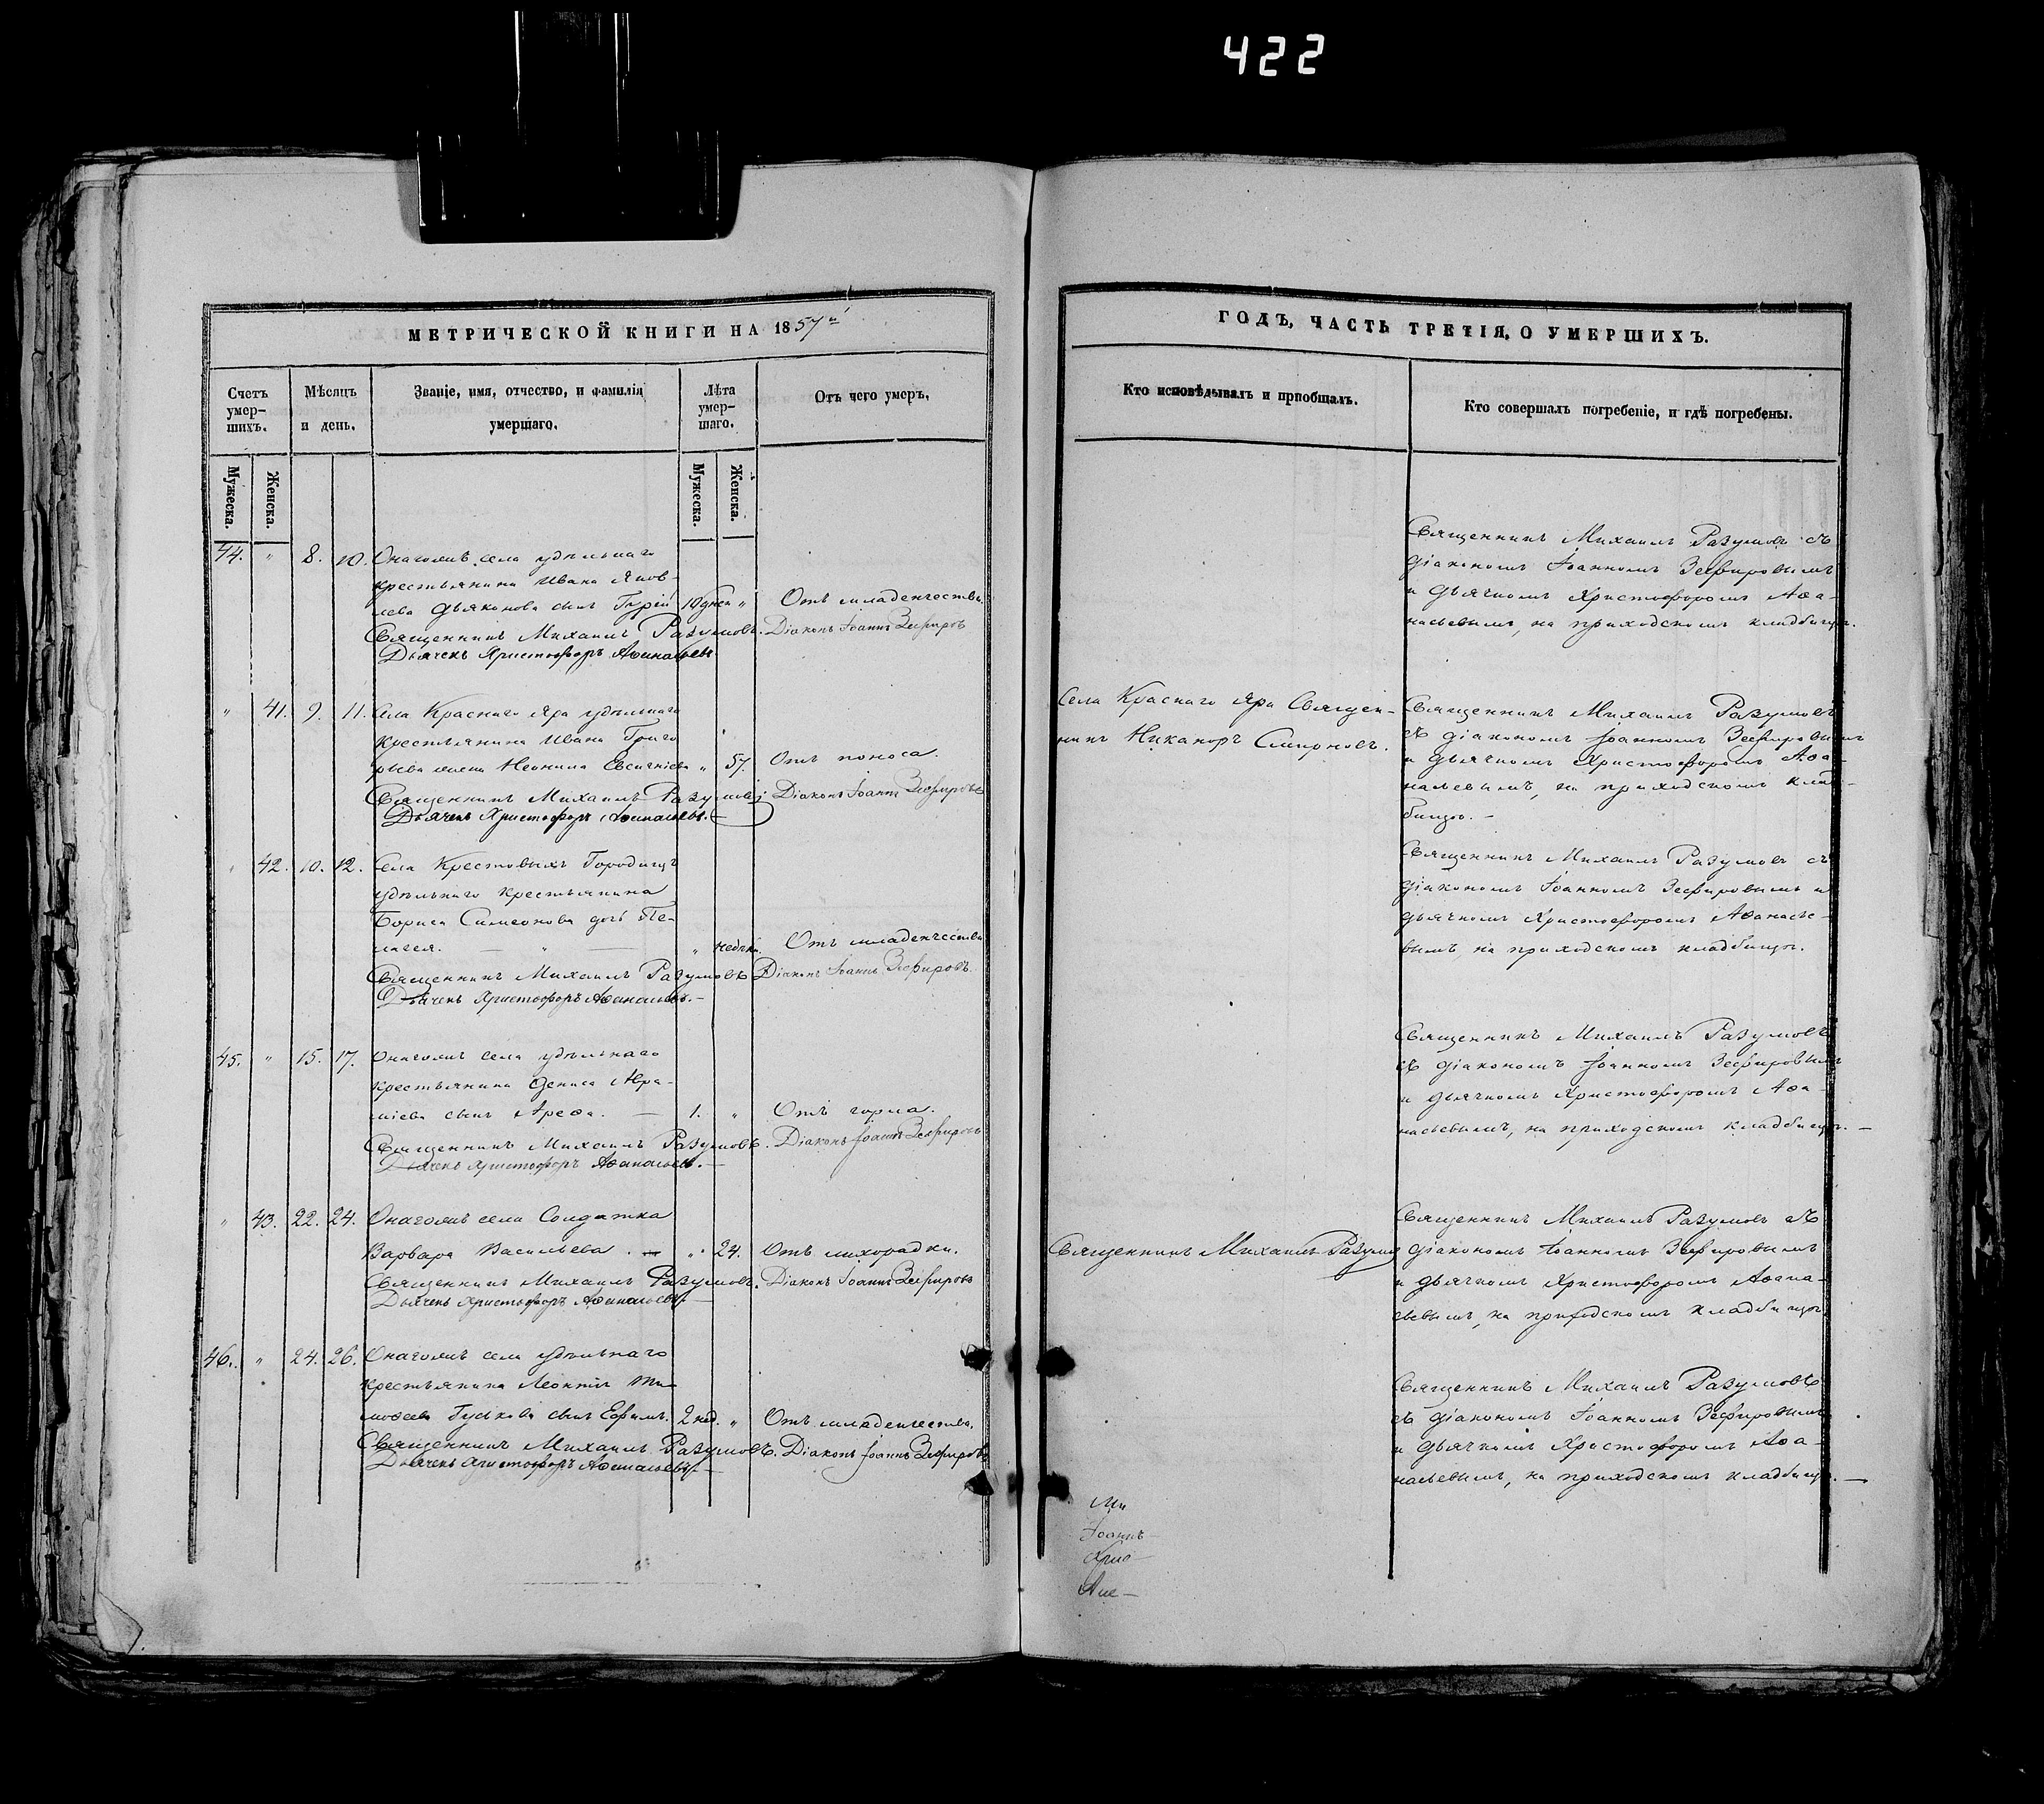 422
МЕТРИЧЕСКОЙ КНИГИ НА 1857й
Счетъ умер-шихъ.
Мѣсяцъ и день.
Званіе, имя, отчество, и фамилія умершаго.
Лѣта умер-шаго.
Отъ чего умеръ.
Мужеска.
Женска.
Мужеска.
Женска.
44. " 8. 10. Онагожъ села удѣльнаго
крестьянина Ивана Яков-
лева Дьяконова сынъ Гурій 10 дней " Отъ младенчества.
Священникъ Михаилъ Разумовъ. Діаконъ Іоаннъ Зефировъ
Дьячекъ Христофоръ Аѳанасьевъ
" 41. 9. 11. Села Краснаго Яра удѣльнаго
крестьянина Ивана Григо
рьева жена Неонила Евсигніева " 57. Отъ поноса.
Священникъ Михаилъ Разумовъ Діаконъ Іоаннъ Зефировъ
Дьячекъ Христофоръ Аѳанасьевъ.
" 42. 10. 12. Села Крестовыхъ Городищъ
удѣльнаго крестьянина
Бориса Симеонова дочь Пе-
лагея. " недѣли Отъ младенчества
Священникъ Михаилъ Разумовъ Діаконъ Іоаннъ Зефировъ.
Дьячекъ Христофоръ Аѳанасьевъ.
45. " 15. 17. Онагожъ села удѣльнаго
крестьянина Дениса
сынъ Ареѳа. 1. " Отъ горла.
Священникъ Михаилъ Разумовъ. Діаконъ Іоаннъ Зефировъ
Дьячекъ Христофоръ Аѳанасьевъ.
" 43. 22. 24. Онагожъ села Солдатка
Варвара Васильева. " 24. Отъ лихорадки.
Священникъ Михаилъ Разумовъ. Діаконъ Іоаннъ Зефировъ
Дьячекъ Христофоръ Аѳанасьевъ.
46. " 24. 26. Онагожъ села удѣльнаго
крестьянина Леонтія Ти
моѳеева Гуськова сынъ Ефимъ. 2 нед. " Отъ младенчества.
Священникъ Михаилъ Разумовъ. Діаконъ Іоаннъ Зефировъ
Дьячекъ Христофоръ Аѳанасьевъ.
ГОДЪ, ЧАСТЬ ТРЕТІЯ, О УМЕРШИХЪ.
Кто исповѣдывалъ и пріобщалъ.
Кто совершалъ погребеніе, и гдѣ погребены.
Священникъ Михаилъ Разумовъ съ
діакономъ Іоанномъ Зефировымъ
и дьячкомъ Христофоромъ Аѳа-
насьевымъ, на приходскомъ кладбищѣ.
Села Краснаго Яра Священ-
никъ Никаноръ Смирновъ.
Священникъ Михаилъ Разумовъ
съ діакономъ Іоанномъ Зефировымъ
и дьячкомъ Христофоромъ Аѳа-
насьевымъ, на приходскомъ клад-
бищѣ.
Священникъ Михаилъ Разумовъ съ
діакономъ Іоанномъ Зефировымъ и
дьячкомъ Христофоромъ Аѳанасье-
вымъ, на приходскомъ кладбищѣ.
Священникъ Михаилъ Разумовъ
съ діакономъ Іоанномъ Зефировымъ
и дьячкомъ Христофоромъ Аѳа-
насьевымъ, на приходскомъ кладбищѣ.
Священникъ Михаилъ Разумо
Священникъ Михаилъ Разумовъ съ
діакономъ Іоанномъ Зефировымъ
и дьячкомъ Христофоромъ Аѳана-
сьевымъ, на приходскомъ кладбищѣ
Священникъ Михаилъ Разумовъ
съ діакономъ Іоанномъ Зефировымъ
и дьячкомъ Христофоромъ Аѳа-
насьевымъ, на приходскомъ кладбищѣ.
Ми
Іоаннъ
Хрис